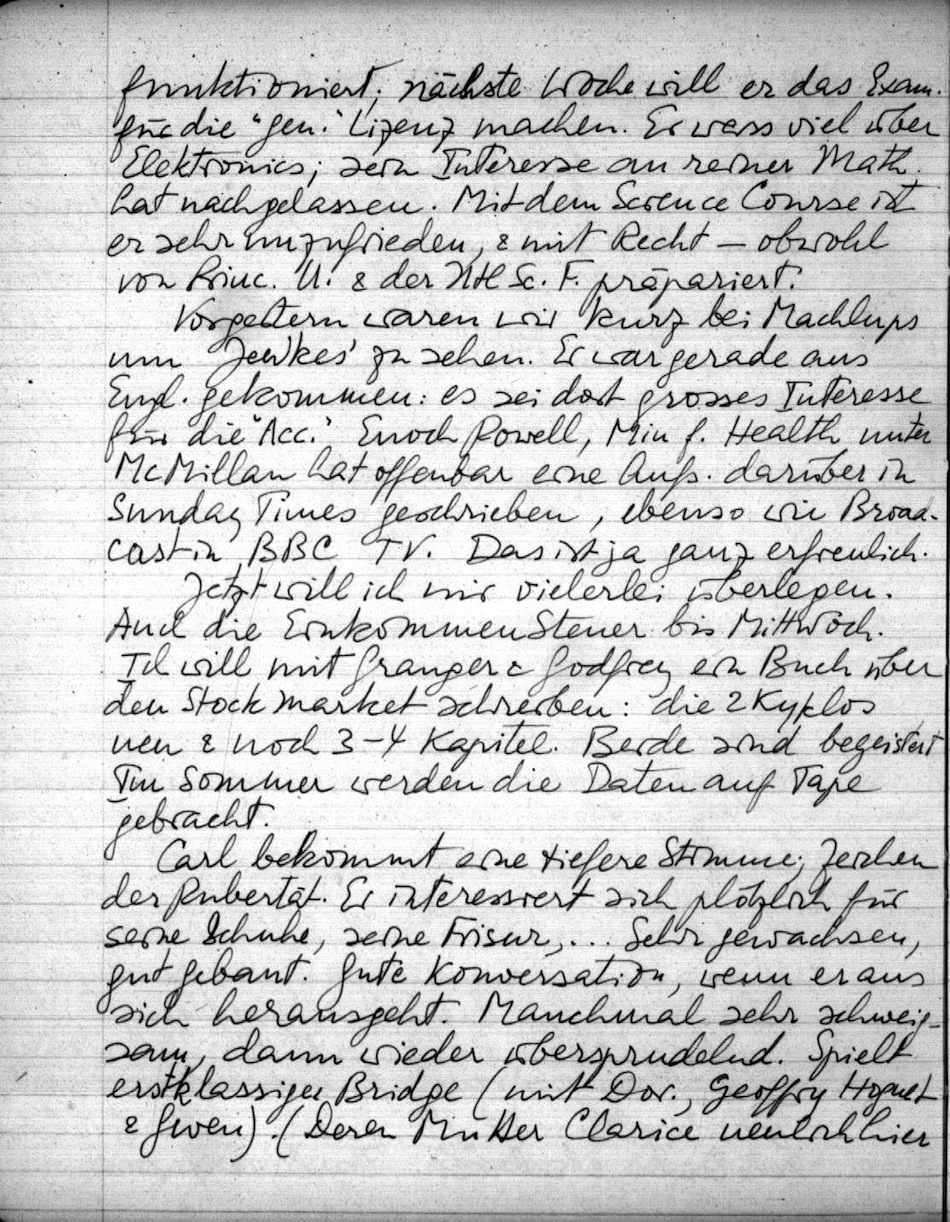 funktioniert; nächste Woche will er das Exam.
für die "gen." Lizenz machen. Er weiss viel über
Elektronics; sein Interesse an reiner Math.
hat nachgelassen. Mit dem Science Course ist
er sehr unzufrieden, & mit Recht – obwohl
von Princ. U. & der Ntl Sc. F. präpariert.
Vorgestern waren wir kurz bei Machlups
um Jewkes' zu sehen. Er war gerade aus
Engl. gekommen: es sei dort grosses Interesse
für die "Acc." Enoch Powell, Min f. Health unter
McMillan hat offenbar eine Aufs. darüber in
Sunday Times geschrieben, ebenso wie Broad-
cast in BBC TV. Das ist ja ganz erfreulich.
Jetzt will ich mir vielerlei überlegen.
Auch die Einkommensteuer bis Mittwoch.
Ich will mit Granger & Godfrey ein Buch über
den Stock market schreiben: die 2 Kyklos
nen & noch 3–4 Kapitel. Beide sind begeistert
Im Sommer werden die Daten auf Tape
gebracht.
Carl bekommt eine tiefere Stimme; Zeichen
der Pubertät. Er interessiert sich plötzlich für
seine Schuhe, seine Frisur,... Sehr gewachsen,
gut gebaut. Gute Konversation, wenn er aus
sich herausgeht. Manchmal sehr schweig-
sam, dann wieder übersprudelnd. Spielt
erstklassigen Bridge (mit Dor., Geoffry
& Gwen). (Deren Mutter Clarice neulich hier